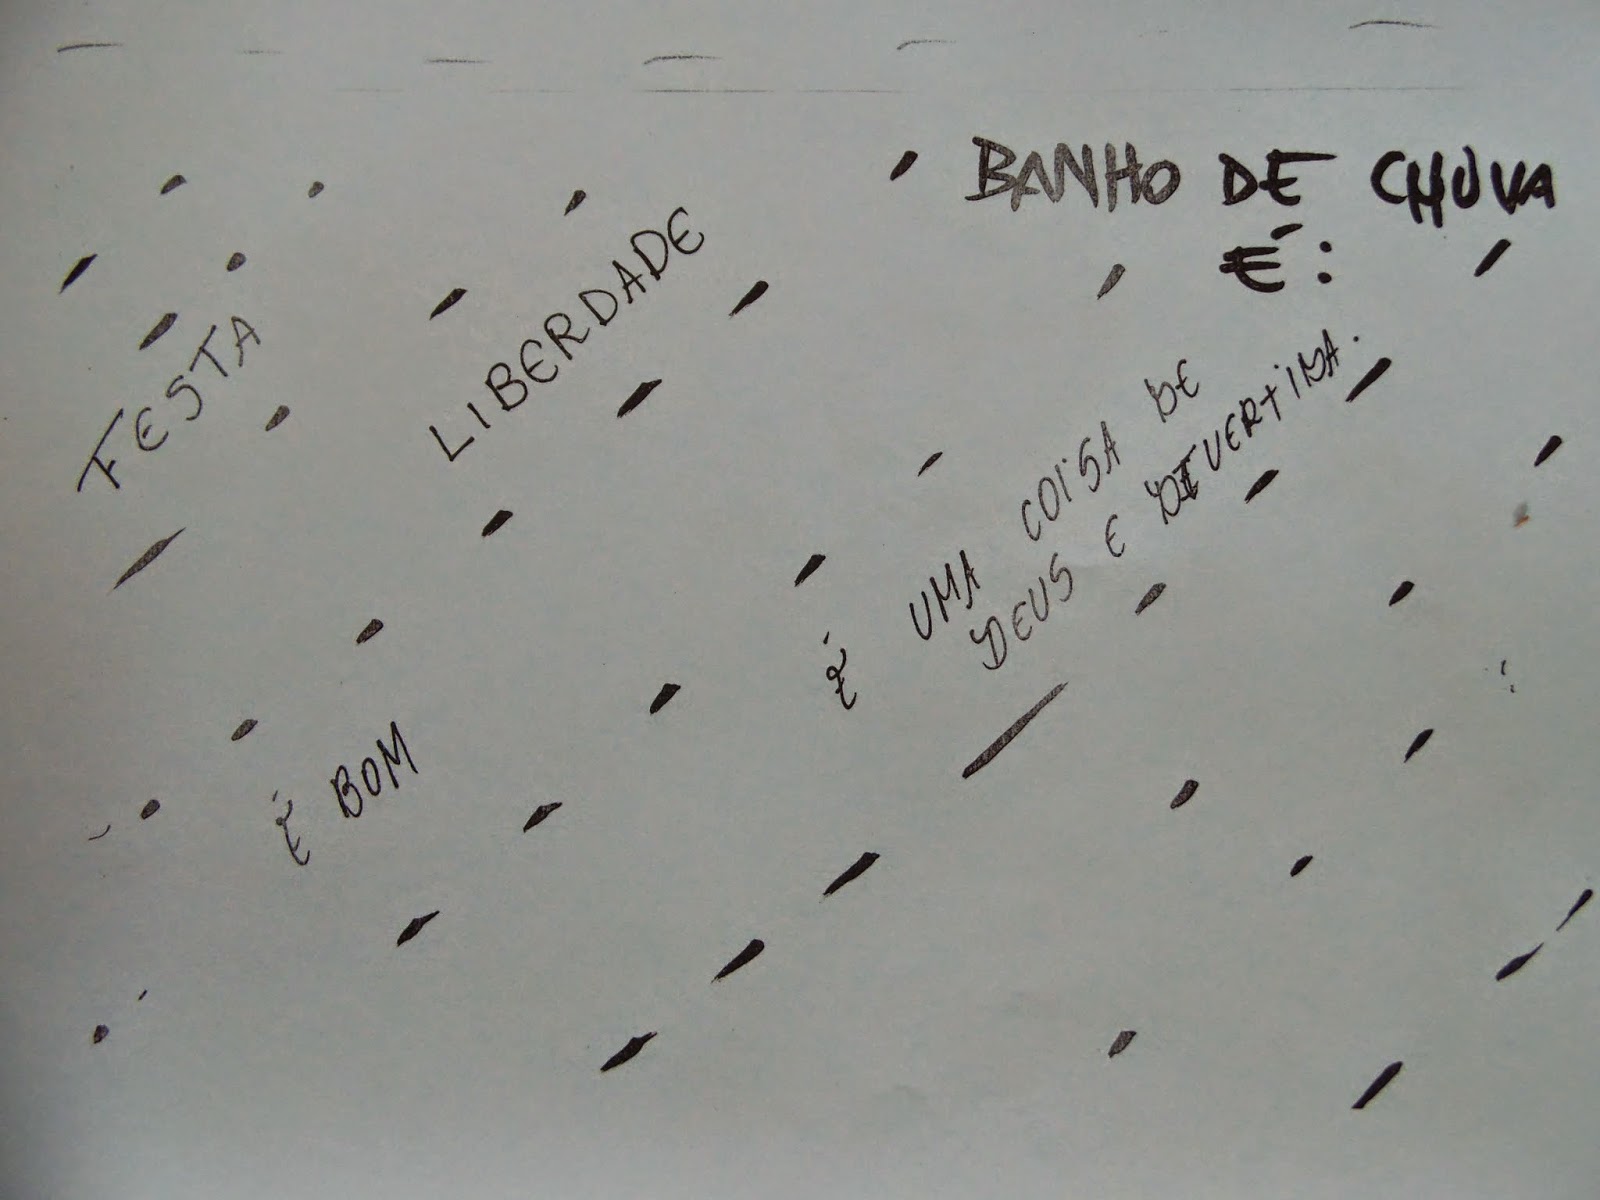 BANHO DE CHUVA
É:
FESTA
LIBERDADE
É UMA COISA DE
DEUS E DIVERTIDA.
É BOM